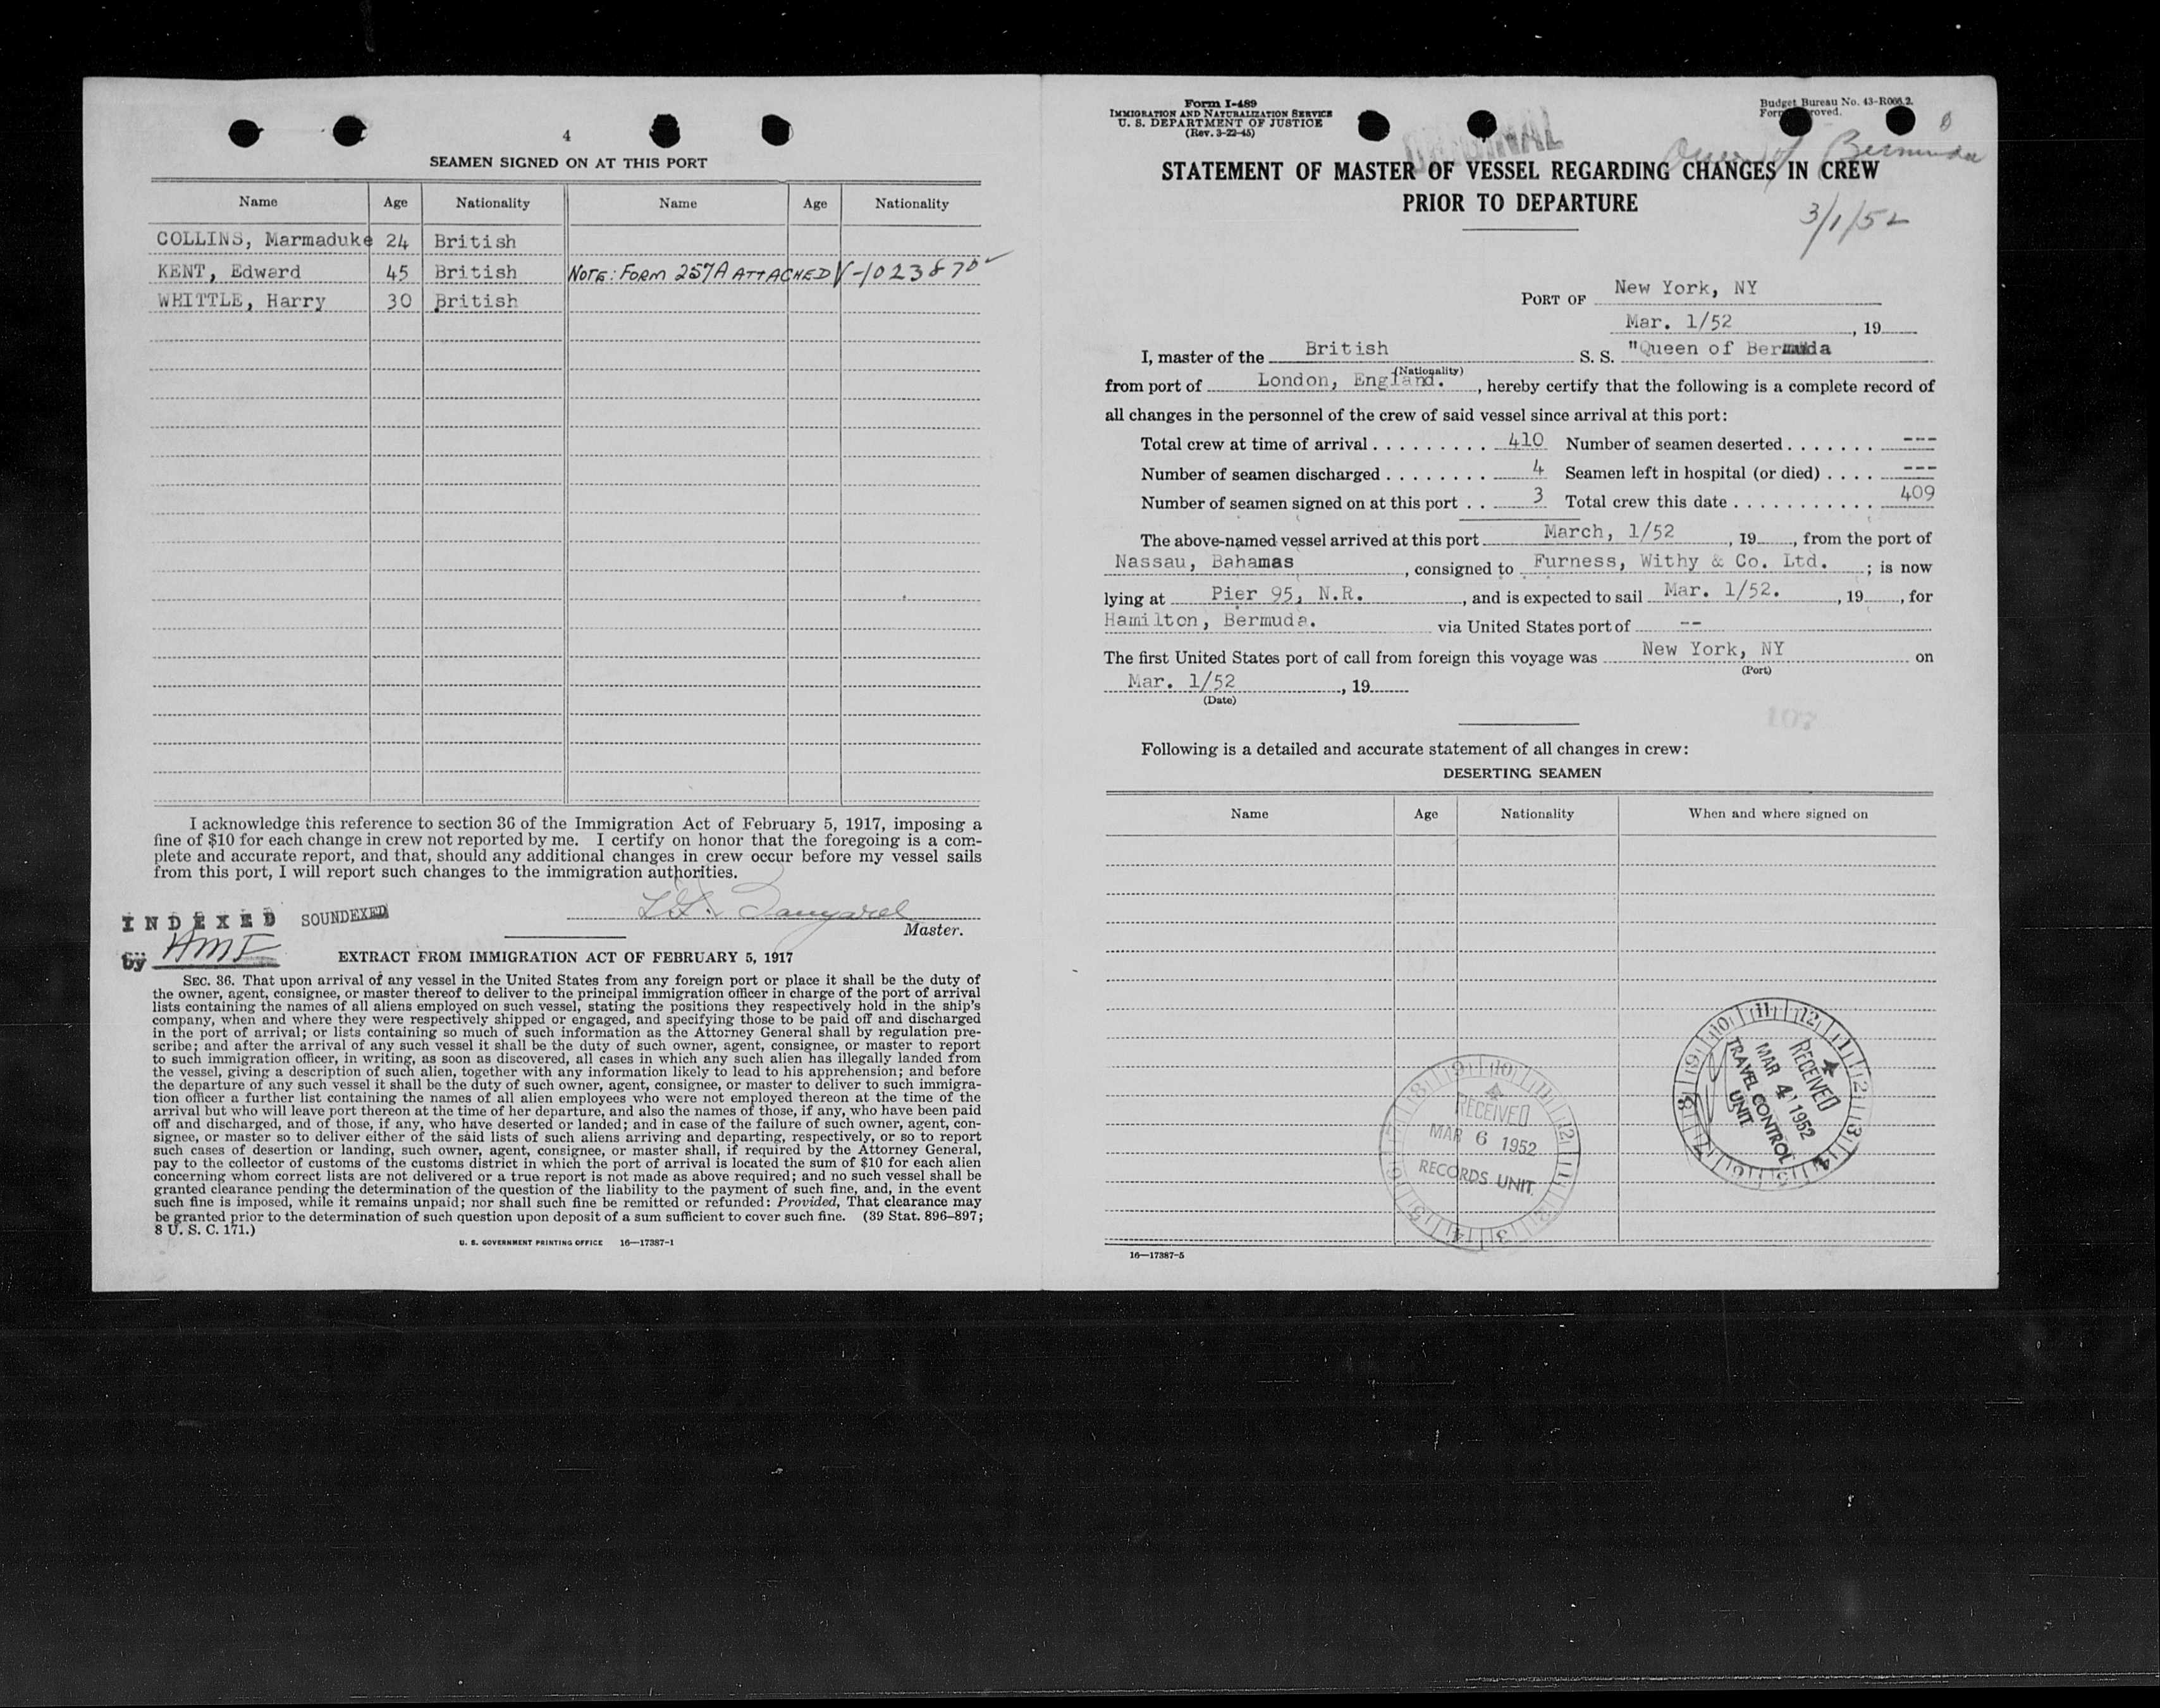 4
SEAMEN SIGNED ON AT THIS PORT
Name Age Nationality Name Age Nationality
COLLINS, Marmaduke 24 British
KENT, Edward 45 British NOTE: FORM 257A ATTACHED V-1023870
WHITTLE, Harry 30 British
I acknowledge this reference to section 36 of the Immigration Act of February 5, 1917, imposing a
fine of $10 for each change in crew not reported by me. I certify on honor that the foregoing is a com-
plete and accurate report, and that, should any additional changes in crew occur before my vessel sails
from this port, I will report such changes to the immigration authorities.
Master.
INDEXED SOUNDEXED
by HMF
EXTRACT FROM IMMIGRATION ACT OF FEBRUARY 5, 1917
SEC. 36. That upon arrival of any vessel in the United States from any foreign port or place it shall be the duty of
the owner, agent, consignee, or master thereof to deliver to the principal immigration officer in charge of the port of arrival
lists containing the names of all aliens employed on such vessel, stating the positions they respectively hold in the ship's
company, when and where they were respectively shipped or engaged, and specifying those to be paid off and discharged
in the port of arrival; or lists containing so much of such information as the Attorney General shall by regulation pre-
scribe; and after the arrival of any such vessel it shall be the duty of such owner, agent, consignee, or master to report
to such immigration officer, in writing, as soon as discovered, all cases in which any such alien has illegally landed from
the vessel, giving a description of such alien, together with any information likely to lead to his apprehension; and before
the departure of any such vessel it shall be the duty of such owner, agent, consignee, or master to deliver to such immigra-
tion officer a further list containing the names of all alien employees who were not employed thereon at the time of the
arrival but who will leave port thereon at the time of her departure, and also the names of those, if any, who have been paid
off and discharged, and of those, if any, who have deserted or landed; and in case of the failure of such owner, agent, con-
signee, or master so to deliver either of the said lists of such aliens arriving and departing, respectively, or so to report
such cases of desertion or landing, such owner, agent, consignee, or master shall, if required by the Attorney General,
pay to the collector of customs of the customs district in which the port of arrival is located the sum of $10 for each alien
concerning whom correct lists are not delivered or a true report is not made as above required; and no such vessel shall be
granted clearance pending the determination of the question of the liability to the payment of such fine, and, in the event
such fine is imposed, while it remains unpaid; nor shall such fine be remitted or refunded: Provided, That clearance may
be granted prior to the determination of such question upon deposit of a sum sufficient to cover such fine. (39 Stat. 896–897;
8 U. S. C. 171.)
U. S. GOVERNMENT PRINTING OFFICE 16—17387-1
Form I-489
IMMIGRATION AND NATURALIZATION SERVICE
U. S. DEPARTMENT OF JUSTICE
(Rev. 3-22-45)
ORIGINAL
Budget Bureau No. 43-R066.2.
Queen of Bermuda
STATEMENT OF MASTER OF VESSEL REGARDING CHANGES IN CREW
PRIOR TO DEPARTURE
3/1/52
PORT OF New York, NY
Mar. 1/52, 19
I, master of the British S. S. "Queen of Bermuda
(Nationality)
from port of London, England., hereby certify that the following is a complete record of
all changes in the personnel of the crew of said vessel since arrival at this port:
Total crew at time of arrival . . . . . . . . . . 410 Number of seamen deserted . . . . . . . ---
Number of seamen discharged . . . . . . . . 4 Seamen left in hospital (or died) . . . . ---
Number of seamen signed on at this port . . 3 Total crew this date . . . . . . . . . . . . 409
The above-named vessel arrived at this port March, 1/52, 19, from the port of
Nassau, Bahamas, consigned to Furness, Withy & Co. Ltd.; is now
lying at Pier 95, N.R., and is expected to sail Mar. 1/52., 19, for
Hamilton, Bermuda. via United States port of --
The first United States port of call from foreign this voyage was New York, NY on
(Port)
Mar. 1/52, 19
(Date)
107
Following is a detailed and accurate statement of all changes in crew:
DESERTING SEAMEN
Name Age Nationality When and where signed on
RECEIVED
MAR 4 1952
TRAVEL CONTROL
UNIT
RECEIVED
MAR 6 1952
RECORDS UNIT
16—17387-5